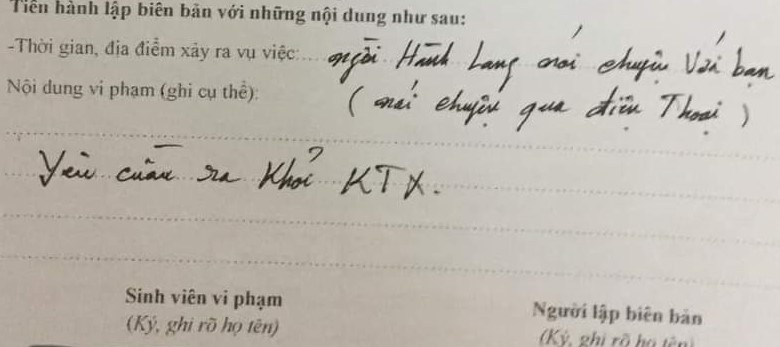 Tiến hành lập biên bản với những nội dung như sau:
-Thời gian, địa điểm xảy ra vụ việc:.... ngồi Hành Lang nói chuyện Với bạn
Nội dung vi phạm (ghi cụ thể): ( nói chuyện qua điện Thoại )
Yêu cầu ra Khỏi KTX.
Sinh viên vi phạm
(Ký, ghi rõ họ tên)
Người lập biên bản
(Ký, ghi rõ họ tên)